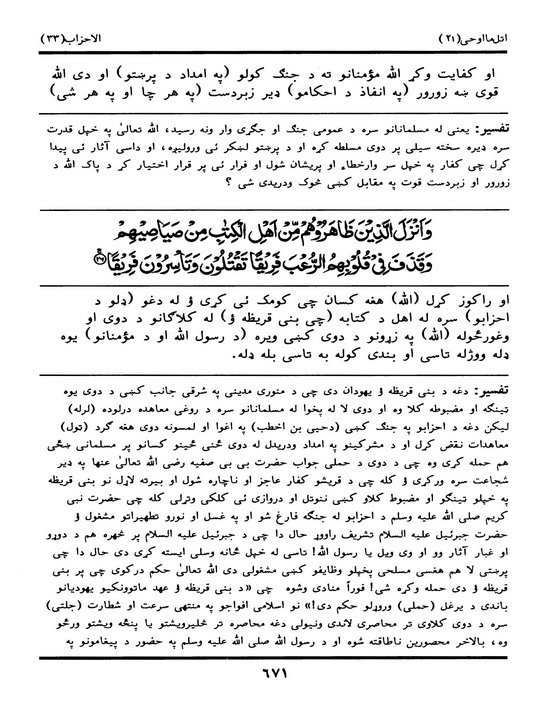 اتل مااوحی(۲۱) الاحزاب(۳۳)
او کفایت وکړ الله مؤمنانو ته د جنګ کولو (په امداد د پرښتو) او دی الله
قوی ښه زورور (په انفاذ د احکامو) ډیر زبردست (په هر چا او په هر شی)
تفسیر: یعنی له مسلمانانو سره د عمومی جنګ او جګړی وار ونه رسید، الله تعالیٰ په خپل قدرت
سره ډیره سخته سیلی پر دوی مسلطه کړه او د پرښتو لښکر ئی ورولېږه، او داسی آثار ئی پیدا
کړل چی کفار په خپل سر وارخطاء او پریشان شول او فرار ئی پر قرار اختیار کړ د پاک الله د
زورور او زبردست قوت په مقابل کښی څوک ودریدی شی ؟
وَاَنْزَلَ الَّذِيْنَ ظَاهَرُوْهُمْ مِّنْ اَهْلِ الْكِتٰبِ مِنْ صَيَاصِيْهِمْ
وَقَذَفَ فِيْ قُلُوْبِهِمُ الرُّعْبَ فَرِيْقًا تَقْتُلُوْنَ وَتَاْسِرُوْنَ فَرِيْقًا
او راکوز کړل (الله) هغه کسان چی کومک ئی کړی ؤ له دغو (ډلو د
احزابو) سره له اهل د کتابه (چی بنی قریظه ؤ) له کلاګانو د دوی او
وغورځوله (الله) په زړونو د دوی کښی ویره (د رسول الله او د مؤمنانو) یوه
ډله ووژله تاسی او بندی کوله به تاسی بله ډله.
تفسیر: دغه د بنی قریظه ؤ یهودان دی چی د منوری مدینی په شرقی جانب کښی د دوی یوه
تینګه او مضبوطه کلا وه او دوی لا له پخوا له مسلمانانو سره د روغی معاهده درلوده (لرله)
لیکن دغه د احزابو په جنګ کښی (دحیی بن اخطب) په اغوا او لمسونه دوی هغه ګرد (ټول)
معاهدات نقض کړل او د مشرکینو په امداد ودریدل له دوی ځنی ځینو کسانو پر مسلمانی ښځی
هم حمله کړی وه چی د دوی د حملی جواب حضرت بی بی صفیه رضی الله تعالیٰ عنها په ډیر
شجاعت سره ورکړی ؤ کله چی د قریشو کفار عاجز او ناچاره شول او بیرته لاړل نو بنی قریظه
په خپلو تینګو او مضبوط کلاو کښی ننوتل او دروازی ئی کلکی وتړلی کله چی حضرت نبی
کریم صلی الله علیه وسلم د احزابو له جنګه فارغ شو او په غسل او نورو تطهیراتو مشغول ؤ
حضرت جبرئیل علیه السلام تشریف راووړ حال دا چی د جبرئیل علیه السلام پر څهره هم د دوړو
او غبار آثار وو او وی ویل یا رسول الله! تاسی له خپل ځانه وسلی ایسته کړی دی حال دا چی
پرښتی لا هم هغسی مسلحی پخپلو وظایفو کښی مشغولی دی الله تعالیٰ حکم درکوی چی پر بنی
قریظه ؤ دی حمله وکړه شی! فوراً منادی وشوه چی «د بنی قریظه ؤ عهد ماتوونکیو یهودیانو
باندی د یرغل (حملی) وروړلو حکم دی!» نو اسلامی افواجو په منتهی سرعت او شطارت (چلتی)
سره د دوی کلاوی تر محاصری لاندی ونیولی دغه محاصره تر څلیرویشتو یا پنځه ویشتو ورځو
وه، بالاخر محصورین ناطاقته شوه او د رسول الله صلی الله علیه وسلم په حضور د پیغامونو په
٦٧١